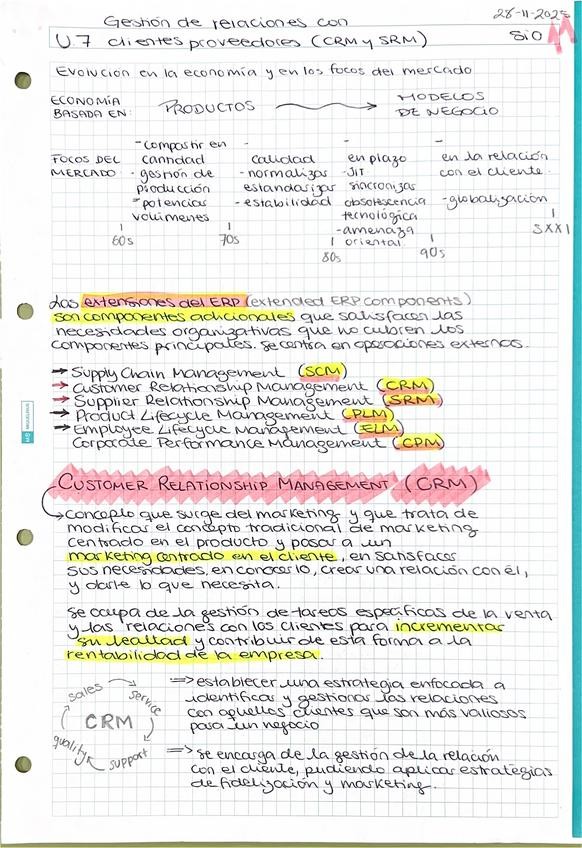 28-11-2025
Gestión de relaciones con
U.7 clientes proveedores (CRM y SRM)
SIO
Evolución en la economía y en los focos del mercado
ECONOMÍA BASADA EN:
PRODUCTOS
MODELOS DE NEGOCIO
FOCOS DEL MERCADO:
- compartir en cantidad
- gestión de producción
- potencias volúmenes
60s
- calidad
- normalizar estandarizar
- estabilidad
70s
- en plazo
- JIT sincronizar
obsolescencia tecnológica
- amenaza oriental
80s
- en la relación con el cliente
- globalización
90s
S XXI
Las extensiones del ERP (extended ERP components)
son componentes adicionales que satisfacen las
necesidades organizativas que no cubren los
componentes principales. Se centra en operaciones externas.
→ Supply Chain Management (SCM)
→ Customer Relationship Management (CRM)
→ Supplier Relationship Management (SRM)
→ Product Lifecycle Management (PLM)
→ Employee Lifecycle Management (ELM)
Corporate Performance Management (CPM)
CUSTOMER RELATIONSHIP MANAGEMENT (CRM)
→ Concepto que surge del marketing y que trata de
modificar el concepto tradicional de marketing
centrado en el producto y pasar a un
marketing centrado en el cliente, en satisfacer
sus necesidades, en conocerlo, crear una relación con él,
y darle lo que necesita.
Se ocupa de la gestión de tareas específicas de la venta
y las relaciones con los clientes para incrementar
su lealtad y contribuir de esta forma a la
rentabilidad de la empresa.
sales
service
CRM
quality
support
=> establecer una estrategia enfocada a
identificar y gestionar las relaciones
con aquellos clientes que son más valiosos
para un negocio
=> se encarga de la gestión de la relación
con el cliente, pudiendo aplicar estrategias
de fidelización y marketing.